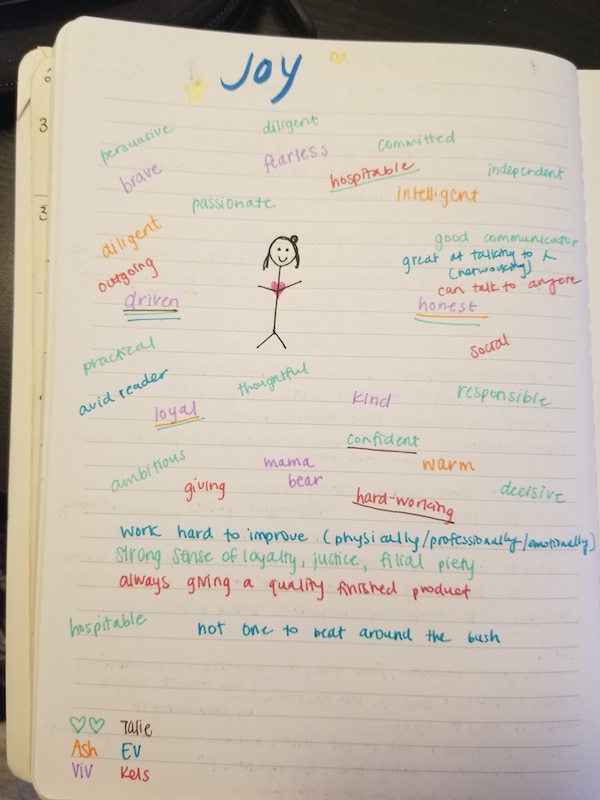 JOY
persuasive
diligent
committed
brave
fearless
hospitable
independent
passionate
intelligent
diligent
good communicator
great at talking to
(networking)
outgoing
can talk to anyone
driven
honest
practical
social
avid reader
thoughtful
kind
responsible
loyal
confident
ambitious
mama
bear
warm
giving
hard-working
decisive
work hard to improve (physically/professionally/emotionally)
strong sense of loyalty, justice, filial piety
always giving a quality finished product
hospitable
not one to beat around the bush
Talie
Ash EV
Viv Kels
3
3